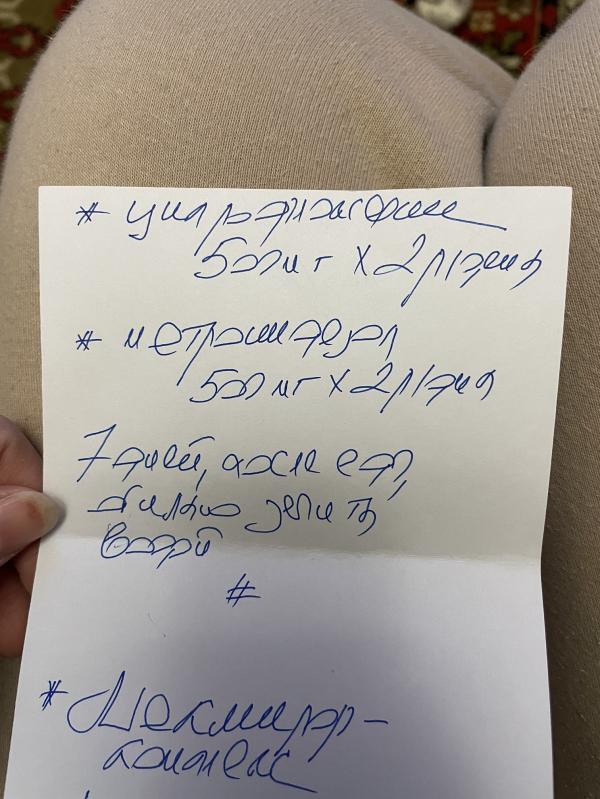 *
500 мг х 2 р/день
* метронидазол
500 мг х 2 р/день
7 дней, после еды,
обильно запить
водой
#
* Макмирор-
комплекс